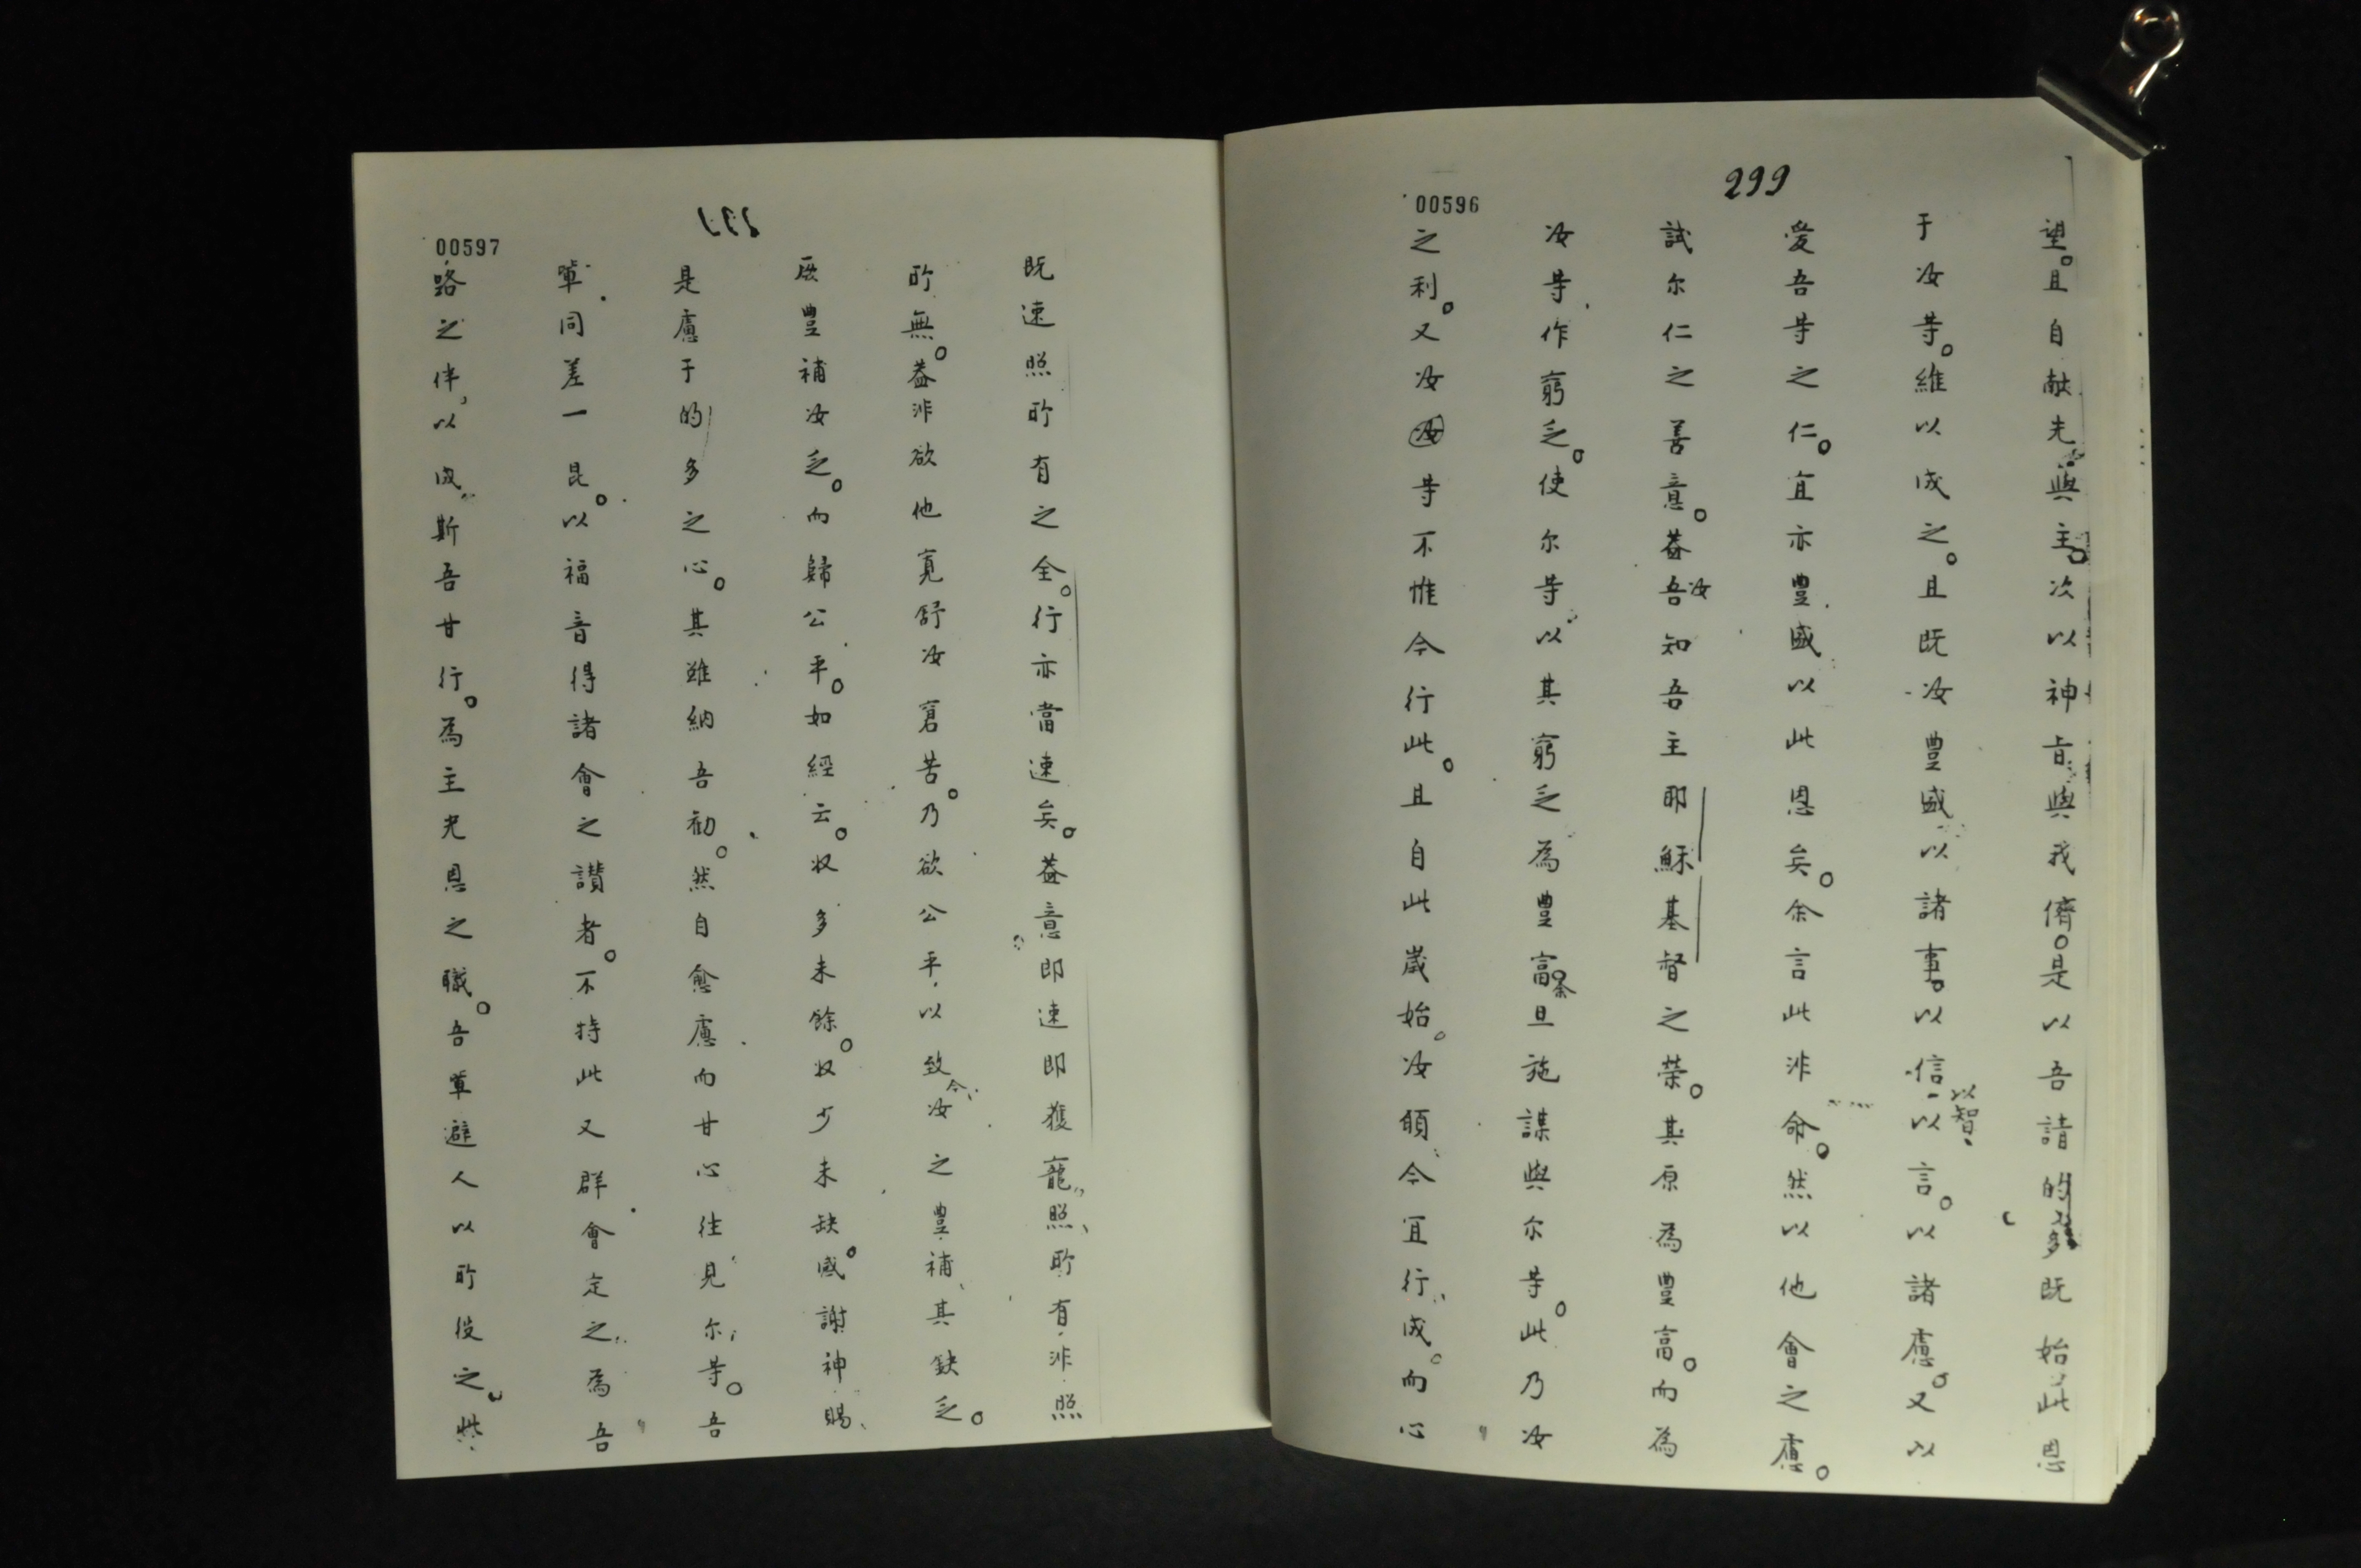 299
00596
望。且自献先與主。次以神旨與我儕。是以吾請的多既始此恩
于汝等。維以成之。且既汝豊盛以諸事。以信以智以言。以諸慮。又以
愛吾等之仁。宜亦豊盛以此恩矣。余言此非命。然以他會之慮。
試尔仁之善意。盖吾汝知吾主耶穌基督之荣。其原為豊富。而為
汝等作窮乏。使尔等以其窮乏為豊富。余且施謀與尔等。此乃汝
之利。又汝汝等不惟今行此。且自此歲始。汝頋今宜行成。而心
00597
既速照所有之全。行亦當速矣。盖意即速即獲寵照所有非照
所無。盖非欲他寬舒汝窘苦。乃欲公平以致今汝之豊補其缺乏。
厥豊補汝乏。而歸公平。如經云。收多未餘。收少未缺。感謝神賜
是慮于的多之心。其雖納吾勸。然自愈慮而甘心往見尔等。吾
軰同差一昆。以福音得諸會之讃者。不特此又群會定之為吾
路之伴以成斯吾甘行。為主光恩之職。吾軰避人以所役之。此